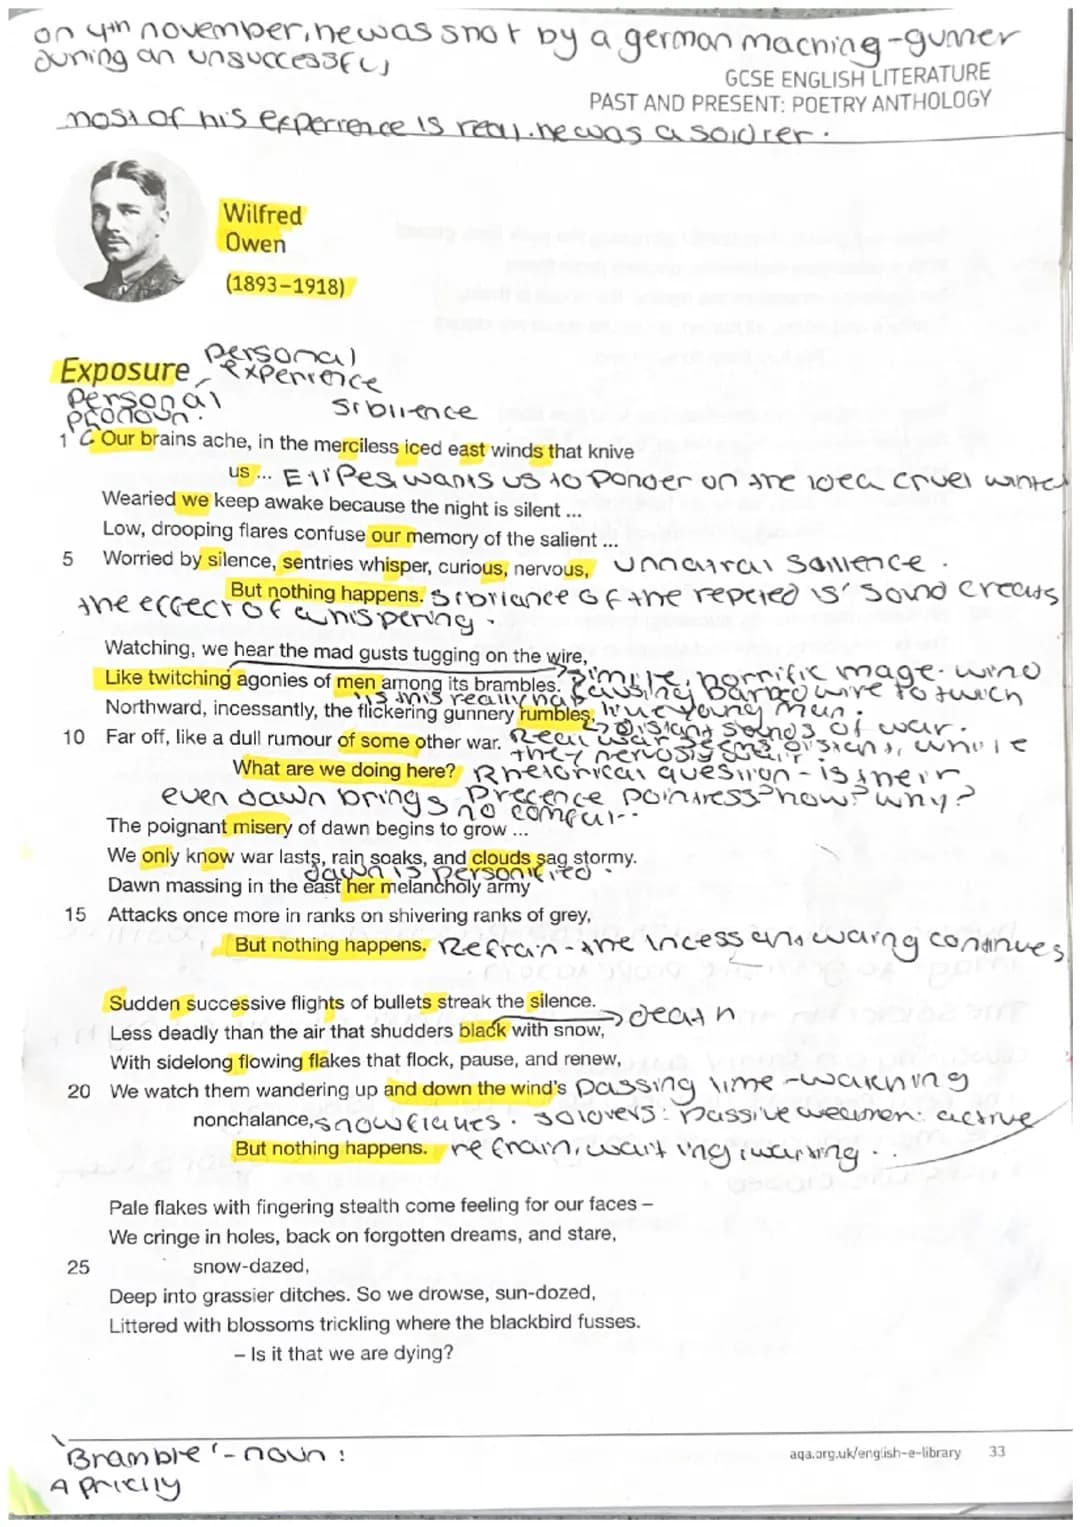 on 4th november, he was shot by a german machine-gunner
during an unsuccessful
GCSE ENGLISH LITERATURE
PAST AND PRESENT: POETRY ANTHOLOGY
most of his experience is real. he was a soldier.
Wilfred
Owen
(1893–1918)
Exposure
personal
experience
Personal
pronoun.
Sibilence
1 Our brains ache, in the merciless iced east winds that knive
us ... Ellipes, wants us to ponder on the idea cruel winter
Wearied we keep awake because the night is silent ...
Low, drooping flares confuse our memory of the salient ...
5 Worried by silence, sentries whisper, curious, nervous, unnatral
But nothing happens. Sibilance of the repeted 's' sound creats
the effect of whispering.
Watching, we hear the mad gusts tugging on the wire,
simile, horrific image. wind
Like twitching agonies of men among its brambles. causing barbed wire to twich
is this really hap
like young men.
Northward, incessantly, the flickering gunnery rumbles,
distant sounds of war.
10 Far off, like a dull rumour of some other war. Real war seems distant, while
they nervosly wait.
What are we doing here? Rhetorical question - is their
presence pointless? how? why?
even dawn brings
no comfur..
The poignant misery of dawn begins to grow ...
We only know war lasts, rain soaks, and clouds sag stormy.
dawn is personified.
Dawn massing in the east her melancholy army
15 Attacks once more in ranks on shivering ranks of grey,
But nothing happens. Refrain - the incessant waiting continues
Sudden successive flights of bullets streak the silence.
death
Less deadly than the air that shudders black with snow,
With sidelong flowing flakes that flock, pause, and renew,
20 We watch them wandering up and down the wind's passing time - watching
nonchalance, snowflakes. soldiers: passive weather: active
But nothing happens. refrain, waiting, waiting..
Pale flakes with fingering stealth come feeling for our faces –
We cringe in holes, back on forgotten dreams, and stare,
25 snow-dazed,
Deep into grassier ditches. So we drowse, sun-dozed,
Littered with blossoms trickling where the blackbird fusses.
– Is it that we are dying?
'Bramble' - noun:
A prickly
aqa.org.uk/english-e-library 33